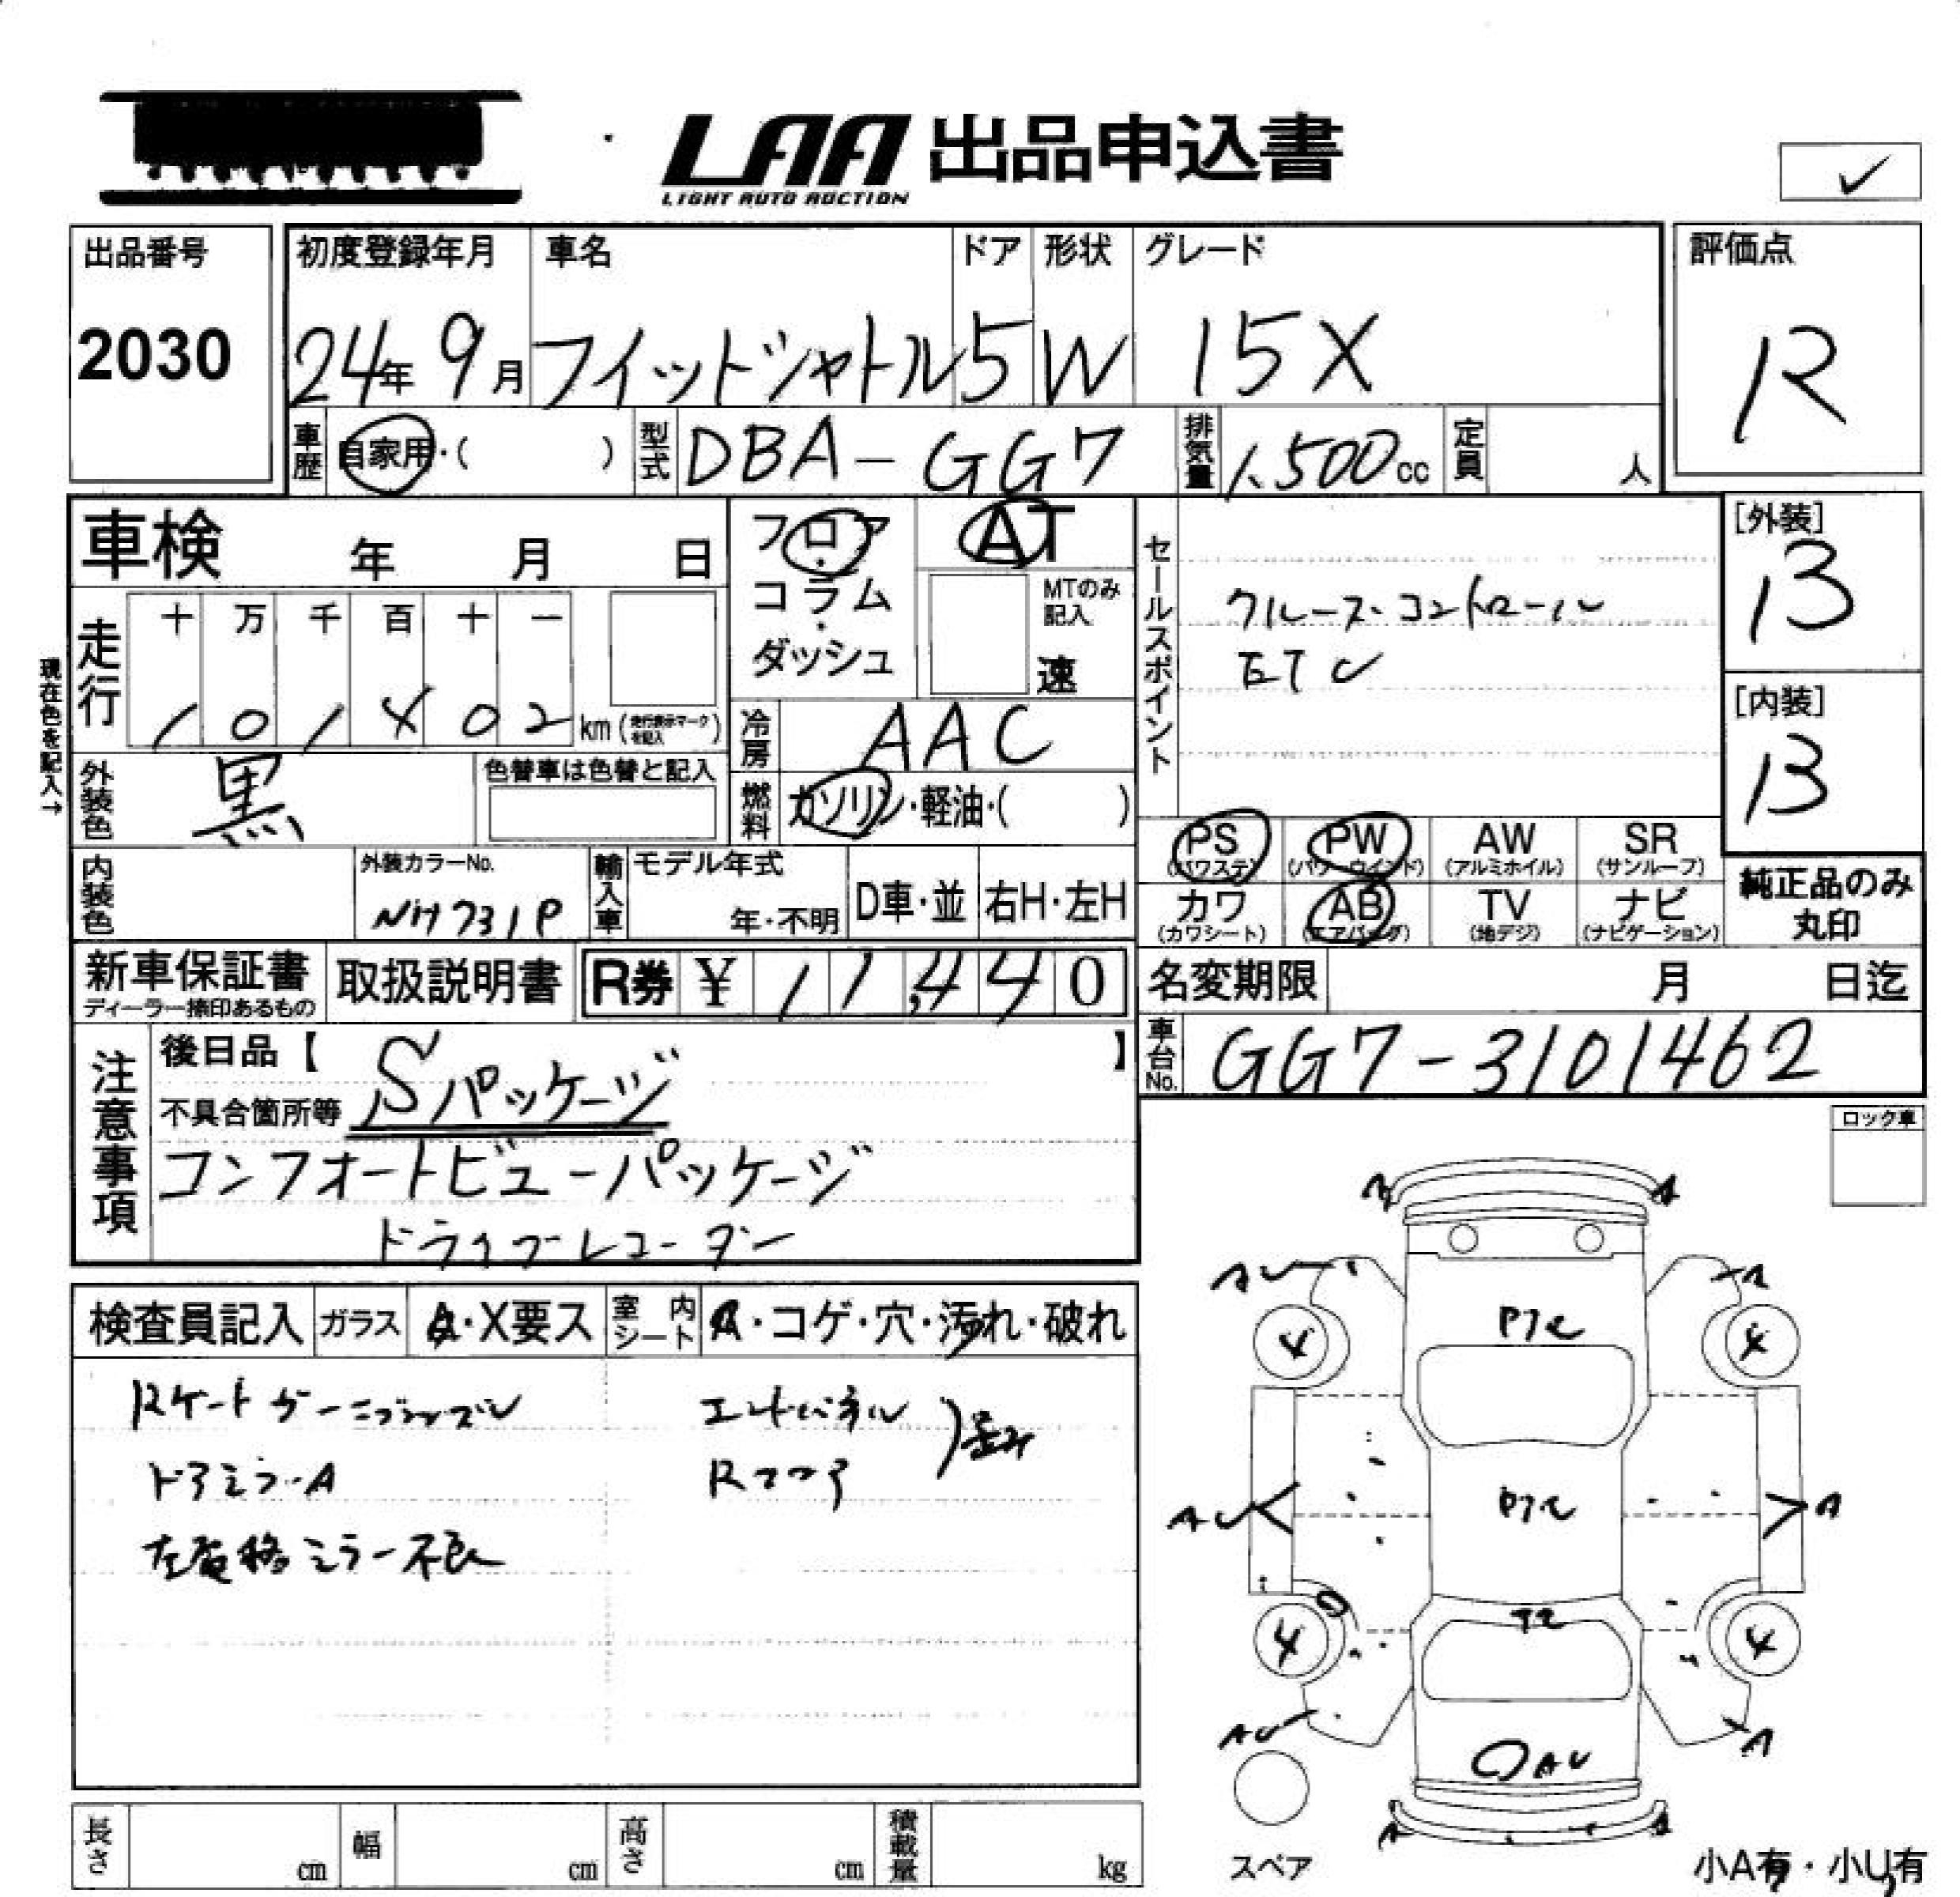 LAA 出品申込書
LIGHT AUTO AUCTION
✓
出品番号
2030
初度登録年月 車名 ドア 形状 グレード
24年 9月 フィットシャトル 5 W 15X
評価点
R
車歴 自家用・( ) 型式 DBA-GG7 排気量 1.500cc 定員 人
車検 年 月 日
フロア・コラム・ダッシュ
AT
MTのみ記入
速
セールスポイント
クルーズ・コントロール
ETC
[外装]
B
[内装]
B
現在色を記入→
走行 十 万 千 百 十 一
101402 km (走行表示マークを記入)
冷房 AAC
外装色 黒 色替車は色替と記入
燃料 ガソリン・軽油・( )
PS (パワステ) PW (パワーウインド) AW (アルミホイル) SR (サンルーフ)
カワ (カワシート) AB (エアバッグ) TV (地デジ) ナビ (ナビゲーション)
純正品のみ
丸印
内装色 外装カラーNo. NH731P 輸入車 モデル年式 年・不明 D車・並 右H・左H
新車保証書 ディーラー捺印あるもの 取扱説明書 R券 ¥ 11,440
名変期限 月 日迄
車台No. GG7-3101462
注意事項
後日品【 】
不具合箇所等 Sパッケージ
コンフォートビューパッケージ
ドライブレコーダー
ロック車
検査員記入 ガラス A・X要ス 室内シート A・コゲ・穴・汚れ・破れ
エンドパネル
Rフロア
ドアミラーA
左電格ミラー不良
A A
AU A
4 4
AU A
4 4
AU A
AU
A A
スペア
小A有・小U有
長さ cm 幅 cm 高さ cm 積載量 kg